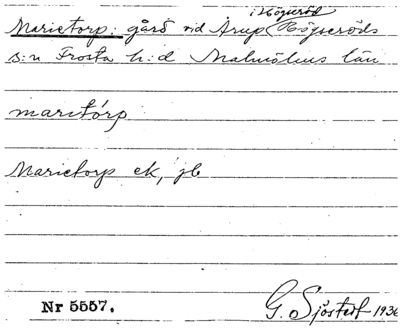 i Högseröd
Marietorp: gård vid Årup (Högseröds
s:n Frosta h:d Malmöhus län
maritórp
Marietorp ek, jb
Nr 5557. G. Sjöstedt 1936